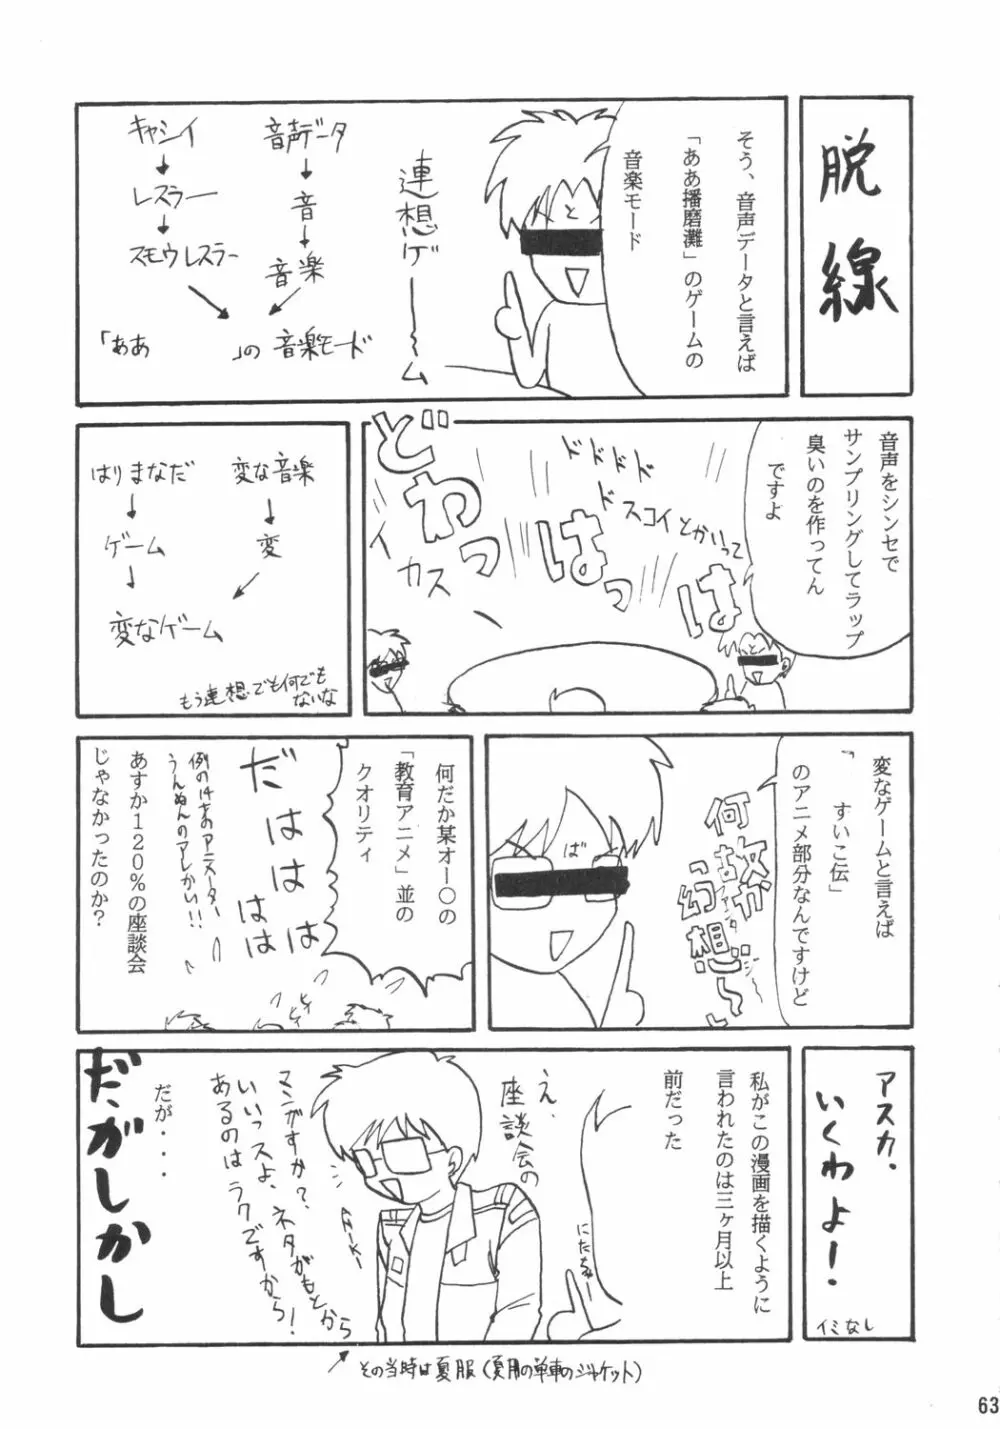 脱線
そう、音声データと言えば
「ああ播磨灘」のゲームの
音楽モード
連想ゲーム
音声データ
↓
音
↓
音楽
キャシイ
↓
レスラー
↓
スモウレスラー
「ああ　　　」の音楽モード
音声をシンセで
サンプリングしてラップ
臭いのを作ってん
ですよ
ははっはっ
ドドドド
ドスコイとかいって
どわっ
イカス
変な音楽
↓
変
はりまなだ
↓
ゲーム
↓
変なゲーム
もう連想でも何でも
ないな
変なゲームと言えば
「　　すいこ伝」
のアニメ部分なんですけど
何故か
幻想〜
ば
何だか某オー〇の
「教育アニメ」並の
クオリティ
だははは
はは
ヒィ
ヒィ
例の14才のアニメーター
うんぬんのアレかい!!
あすか120％の座談会
じゃなかったのか？
アスカ、
いくわよ！
イミなし
私がこの漫画を描くように
言われたのは三ヶ月以上
前だった
え、
座談会の
マンガすか？
いいっスよ、ネタがもとから
あるのはラクですから！
だが・・・・
だがしかし
その当時は夏服（夏用の単車のジャケット）
63